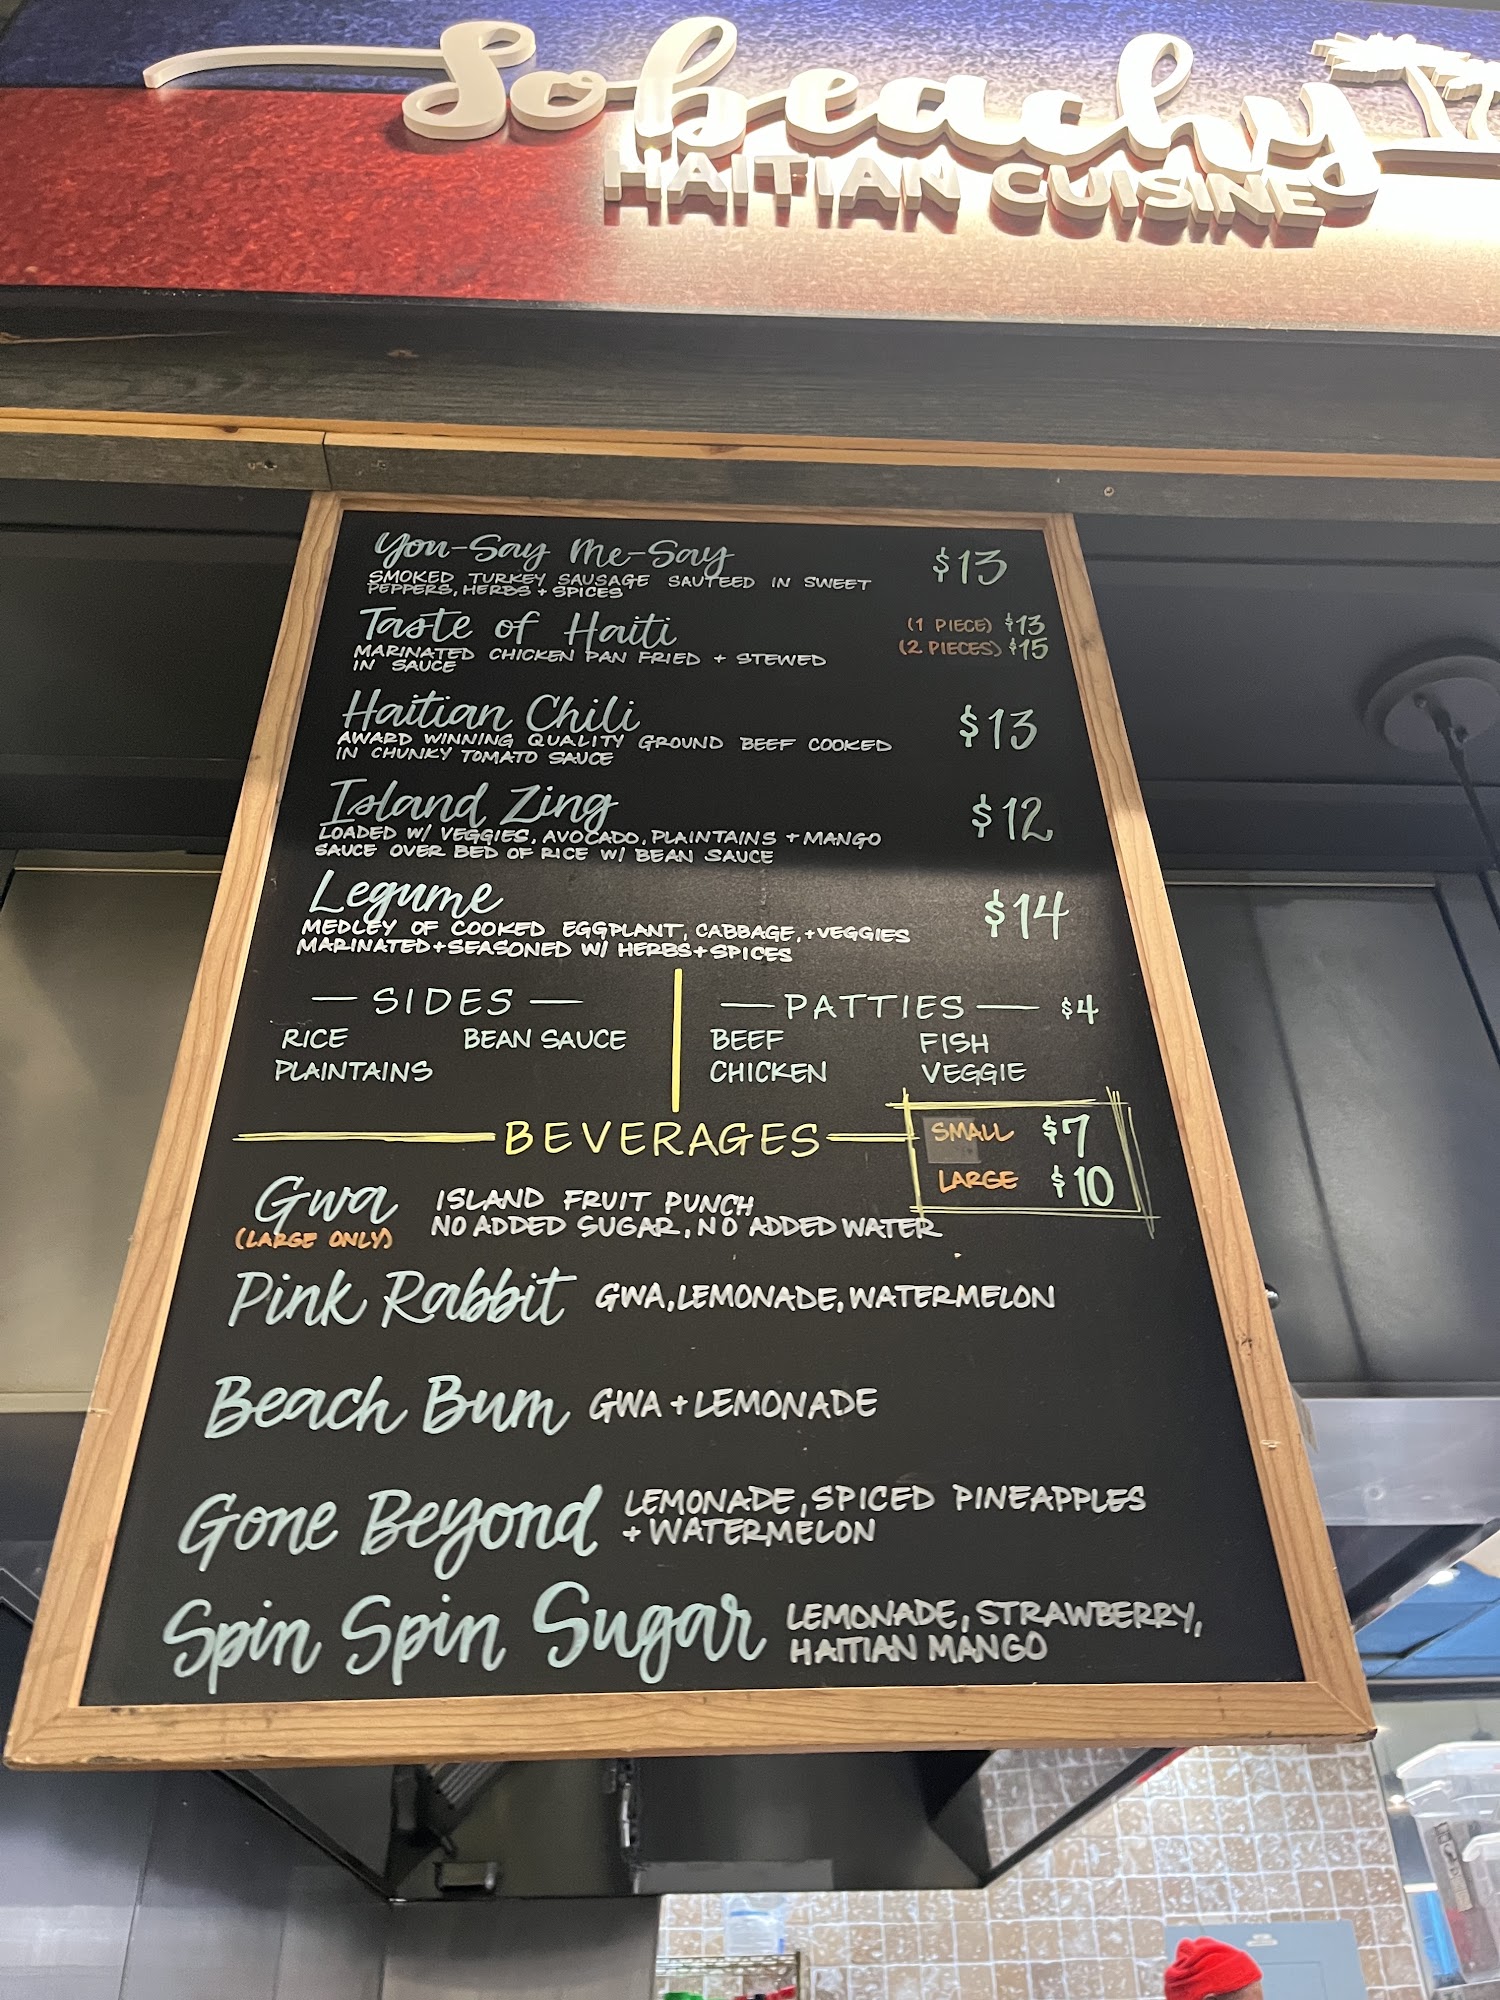 Sobeachy
HAITIAN CUISINE
You-Say Me-Say $13
SMOKED TURKEY SAUSAGE SAUTEED IN SWEET
PEPPERS, HERBS + SPICES
Taste of Haiti (1 PIECE) $13
(2 PIECES) $15
MARINATED CHICKEN PAN FRIED + STEWED
IN SAUCE
Haitian Chili $13
AWARD WINNING QUALITY GROUND BEEF COOKED
IN CHUNKY TOMATO SAUCE
Island Zing $12
LOADED W/ VEGGIES, AVOCADO, PLAINTAINS + MANGO
SAUCE OVER BED OF RICE W/ BEAN SAUCE
Legume $14
MEDLEY OF COOKED EGGPLANT, CABBAGE, + VEGGIES
MARINATED + SEASONED W/ HERBS + SPICES
— SIDES —
RICE BEAN SAUCE
PLAINTAINS
— PATTIES — $4
BEEF FISH
CHICKEN VEGGIE
BEVERAGES
SMALL $7
LARGE $10
Gwa ISLAND FRUIT PUNCH
(LARGE ONLY) NO ADDED SUGAR, NO ADDED WATER
Pink Rabbit GWA, LEMONADE, WATERMELON
Beach Bum GWA + LEMONADE
Gone Beyond LEMONADE, SPICED PINEAPPLES
+ WATERMELON
Spin Spin Sugar LEMONADE, STRAWBERRY,
HAITIAN MANGO